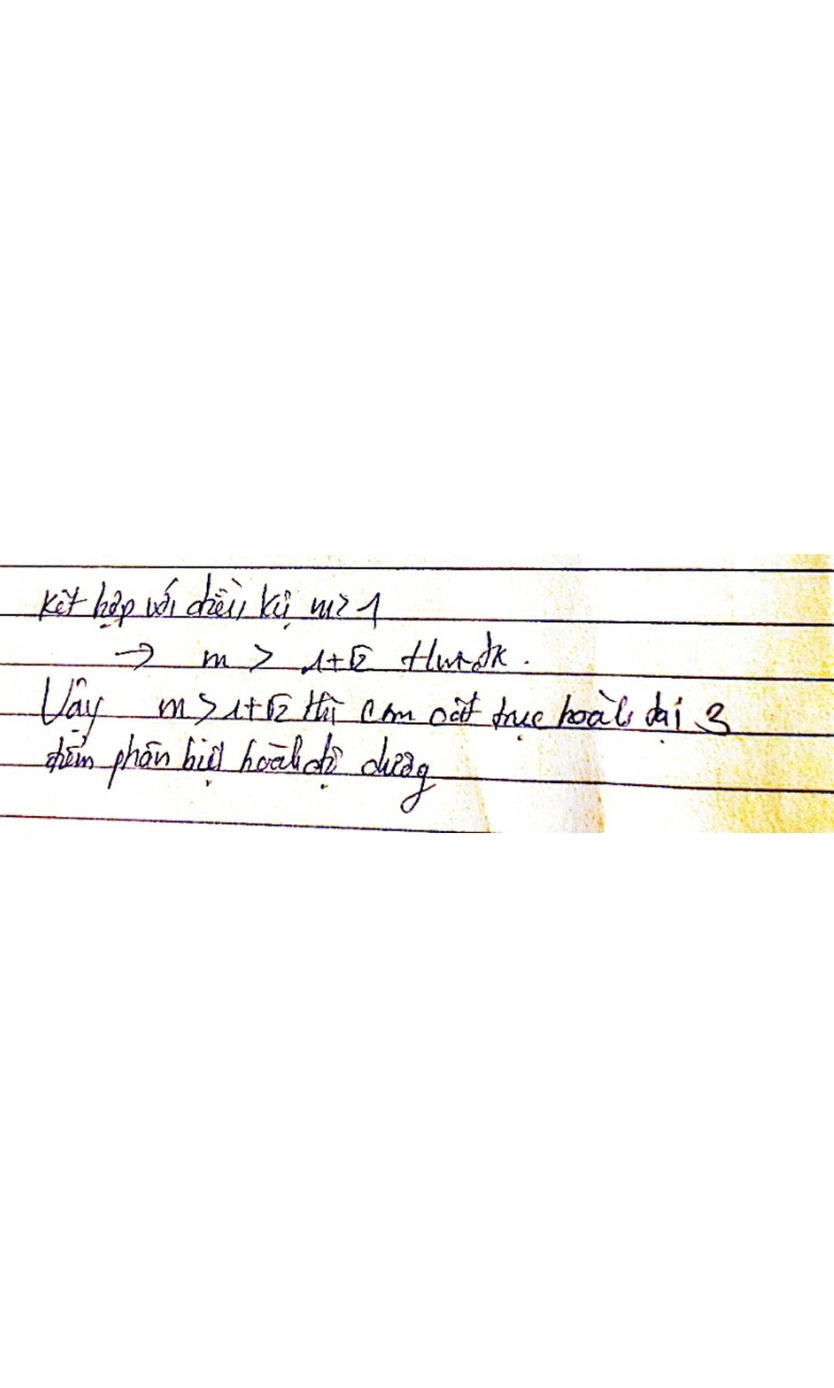 Kết hợp với điều kị m > 1
→ m > 1+√2 thì đk.
Vậy m > 1+√2 thì Cm cắt trục hoàh tại 3
điểm phân biệt hoàh độ dương